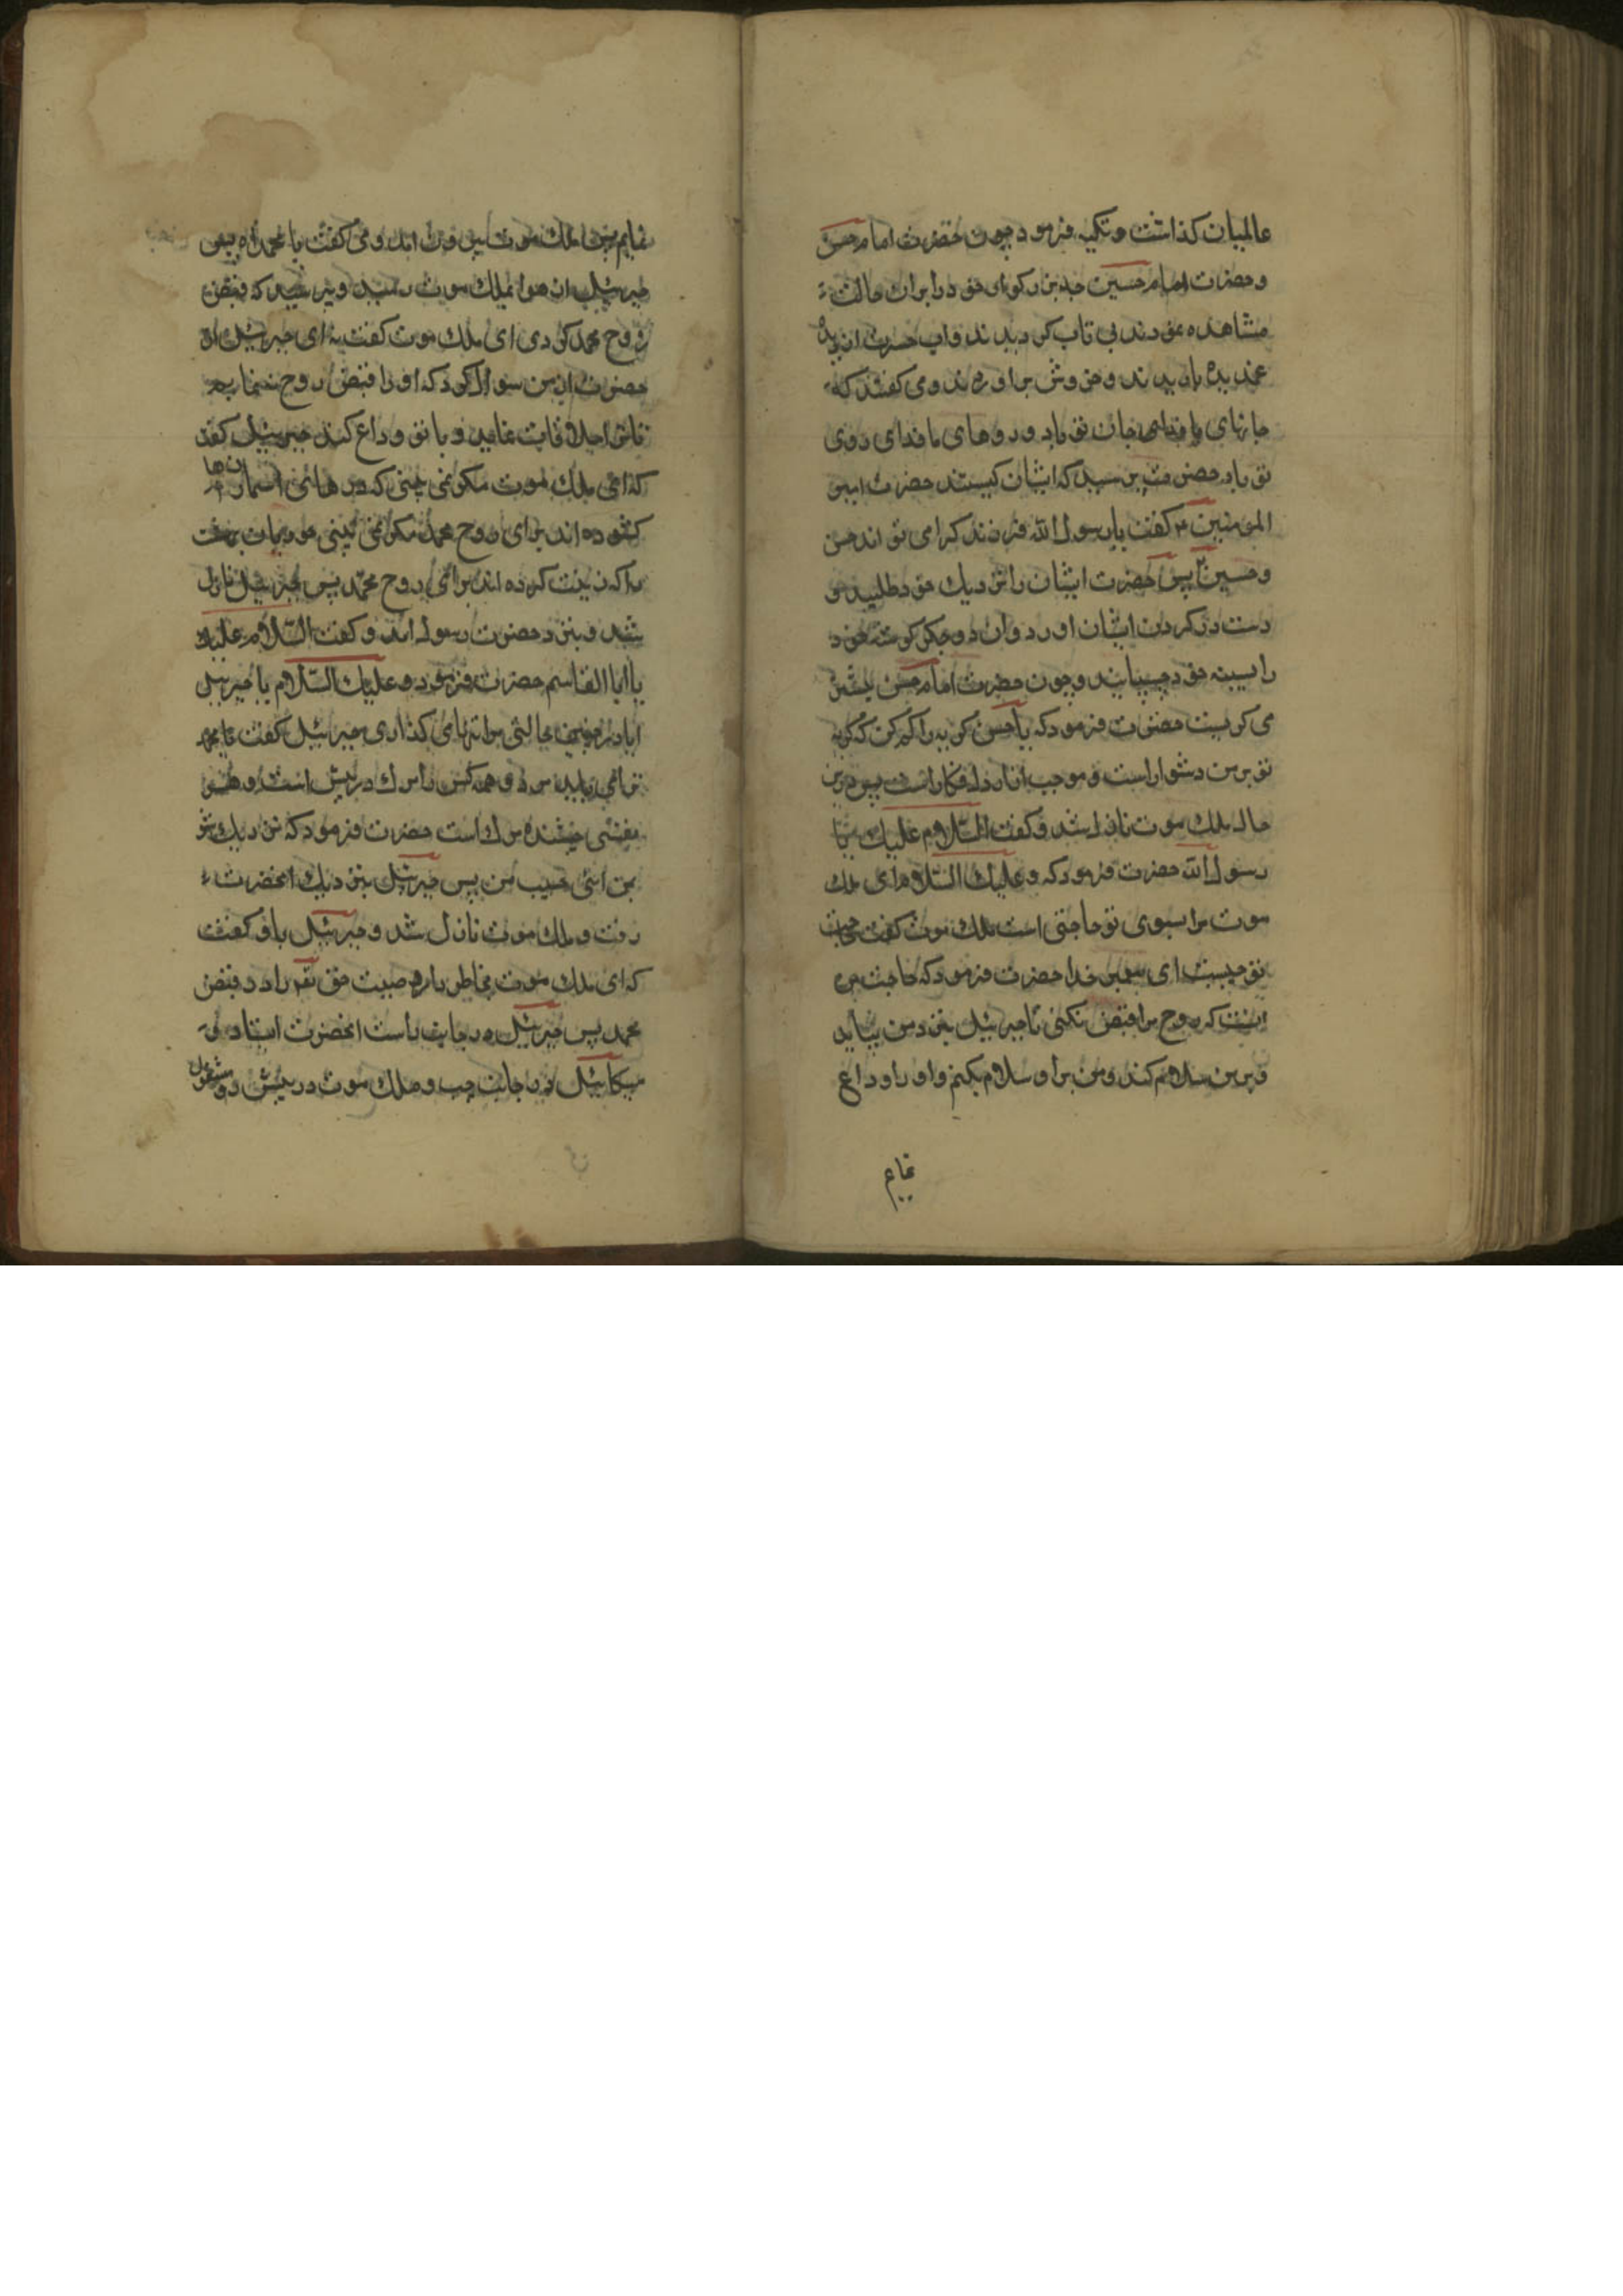 عالمیان کذاشت و تکیه فرمود چون حضرت امام حسن
و حضرت امام حسین جد بزرکوار خود را بران حالت
مشاهده نمودند بی تاب کردیدند واب حسرت از دیده
غمدیده باریدند و خروش براوردند و می کفتند که
جانهای ما فدای جان تو باد و روهای ما فدای روی
تو باد حضرت پرسید که ایشان کیستند حضرت امیر
المومنین کفت یا رسول الله فرزندان کرامی تو اند حسن
و حسین پس حضرت ایشان را نزدیک خود طلبید و
دست در کردن ایشان اورد وان دو جکر کوشه خود
را بسینه خود چسپانید و چون حضرت امام حسن بیشتر
می کریست حضرت فرمود که یا حسن کریه را کم کن که کریه
تو بر من دشوار است و موجب ازار دل افکار است پس درین
حال ملک موت نازل شد و کفت السلام علیک یا
رسول الله حضرت فرمود که و علیک السلام ای ملک
موت مرا بسوی تو حاجتی است ملک موت کفت حاجت
تو چیست ای پیغمبر خدا حضرت فرمود که حاجت من
انست که روح مرا قبض نکنی تا جبرئیل بنزد من بیاید
و بر من سلام کند و من بر او سلام بکنم و او را وداع
نمایم
نمایم پس ملک موت بیرون امد و می کفت یا محمداه پس
جبرئیل از هوا بملک موت رسید و پرسید که قبض
روح محمد کردی ای ملک موت کفت نه ای جبرئیل ان
حضرت از من سوال کرد که او را قبض روح ننمایم
تا ترا ملاقات نماید و با تو وداع کند جبرئیل کفت
که ای ملک موت مکر نمی بینی که درهای اسمان ها
کشوده اند برای روح محمد مکر نمی بینی حوریان بهشت
را که زینت کرده اند برای روح محمد پس جبرئیل نازل
شد و بنزد حضرت رسول امد و کفت السلام علیک
یا ابا القاسم حضرت فرمود و علیک السلام یا جبرئیل
ایا در چنین حالتی مرا تنها می کذاری جبرئیل کفت یا محمد
ترا می باید مرد و همه کس را مرک در پیش است و هر
نفسی چشنده مرک است حضرت فرمود که نزدیک شو
بمن ای حبیب من پس جبرئیل بنزدیک انحضرت
رفت و ملک موت نازل شد و جبرئیل باو کفت
که ای ملک موت بخاطر دار وصیت حق تعالی را در قبض
محمد پس جبرئیل در جانب راست انحضرت ایستاد و
میکائیل در جانب چپ و ملک موت در پیش رو مشغول